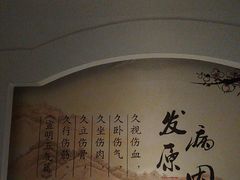 发病
原因
久视伤血，
久卧伤气，
久坐伤肉，
久立伤骨，
久行伤筋，
《宣明五气篇